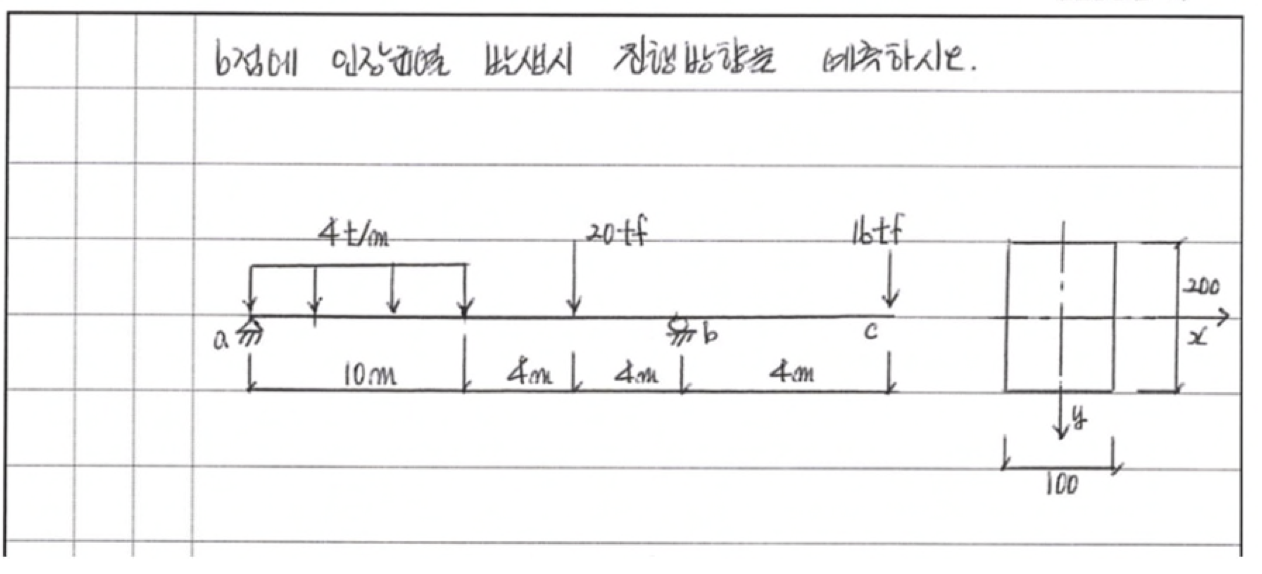 b점에 인장균열 발생시 진행방향을 예측하시오.
4t/m 20tf 16tf
200
a b c x
10m 4m 4m 4m
y
100